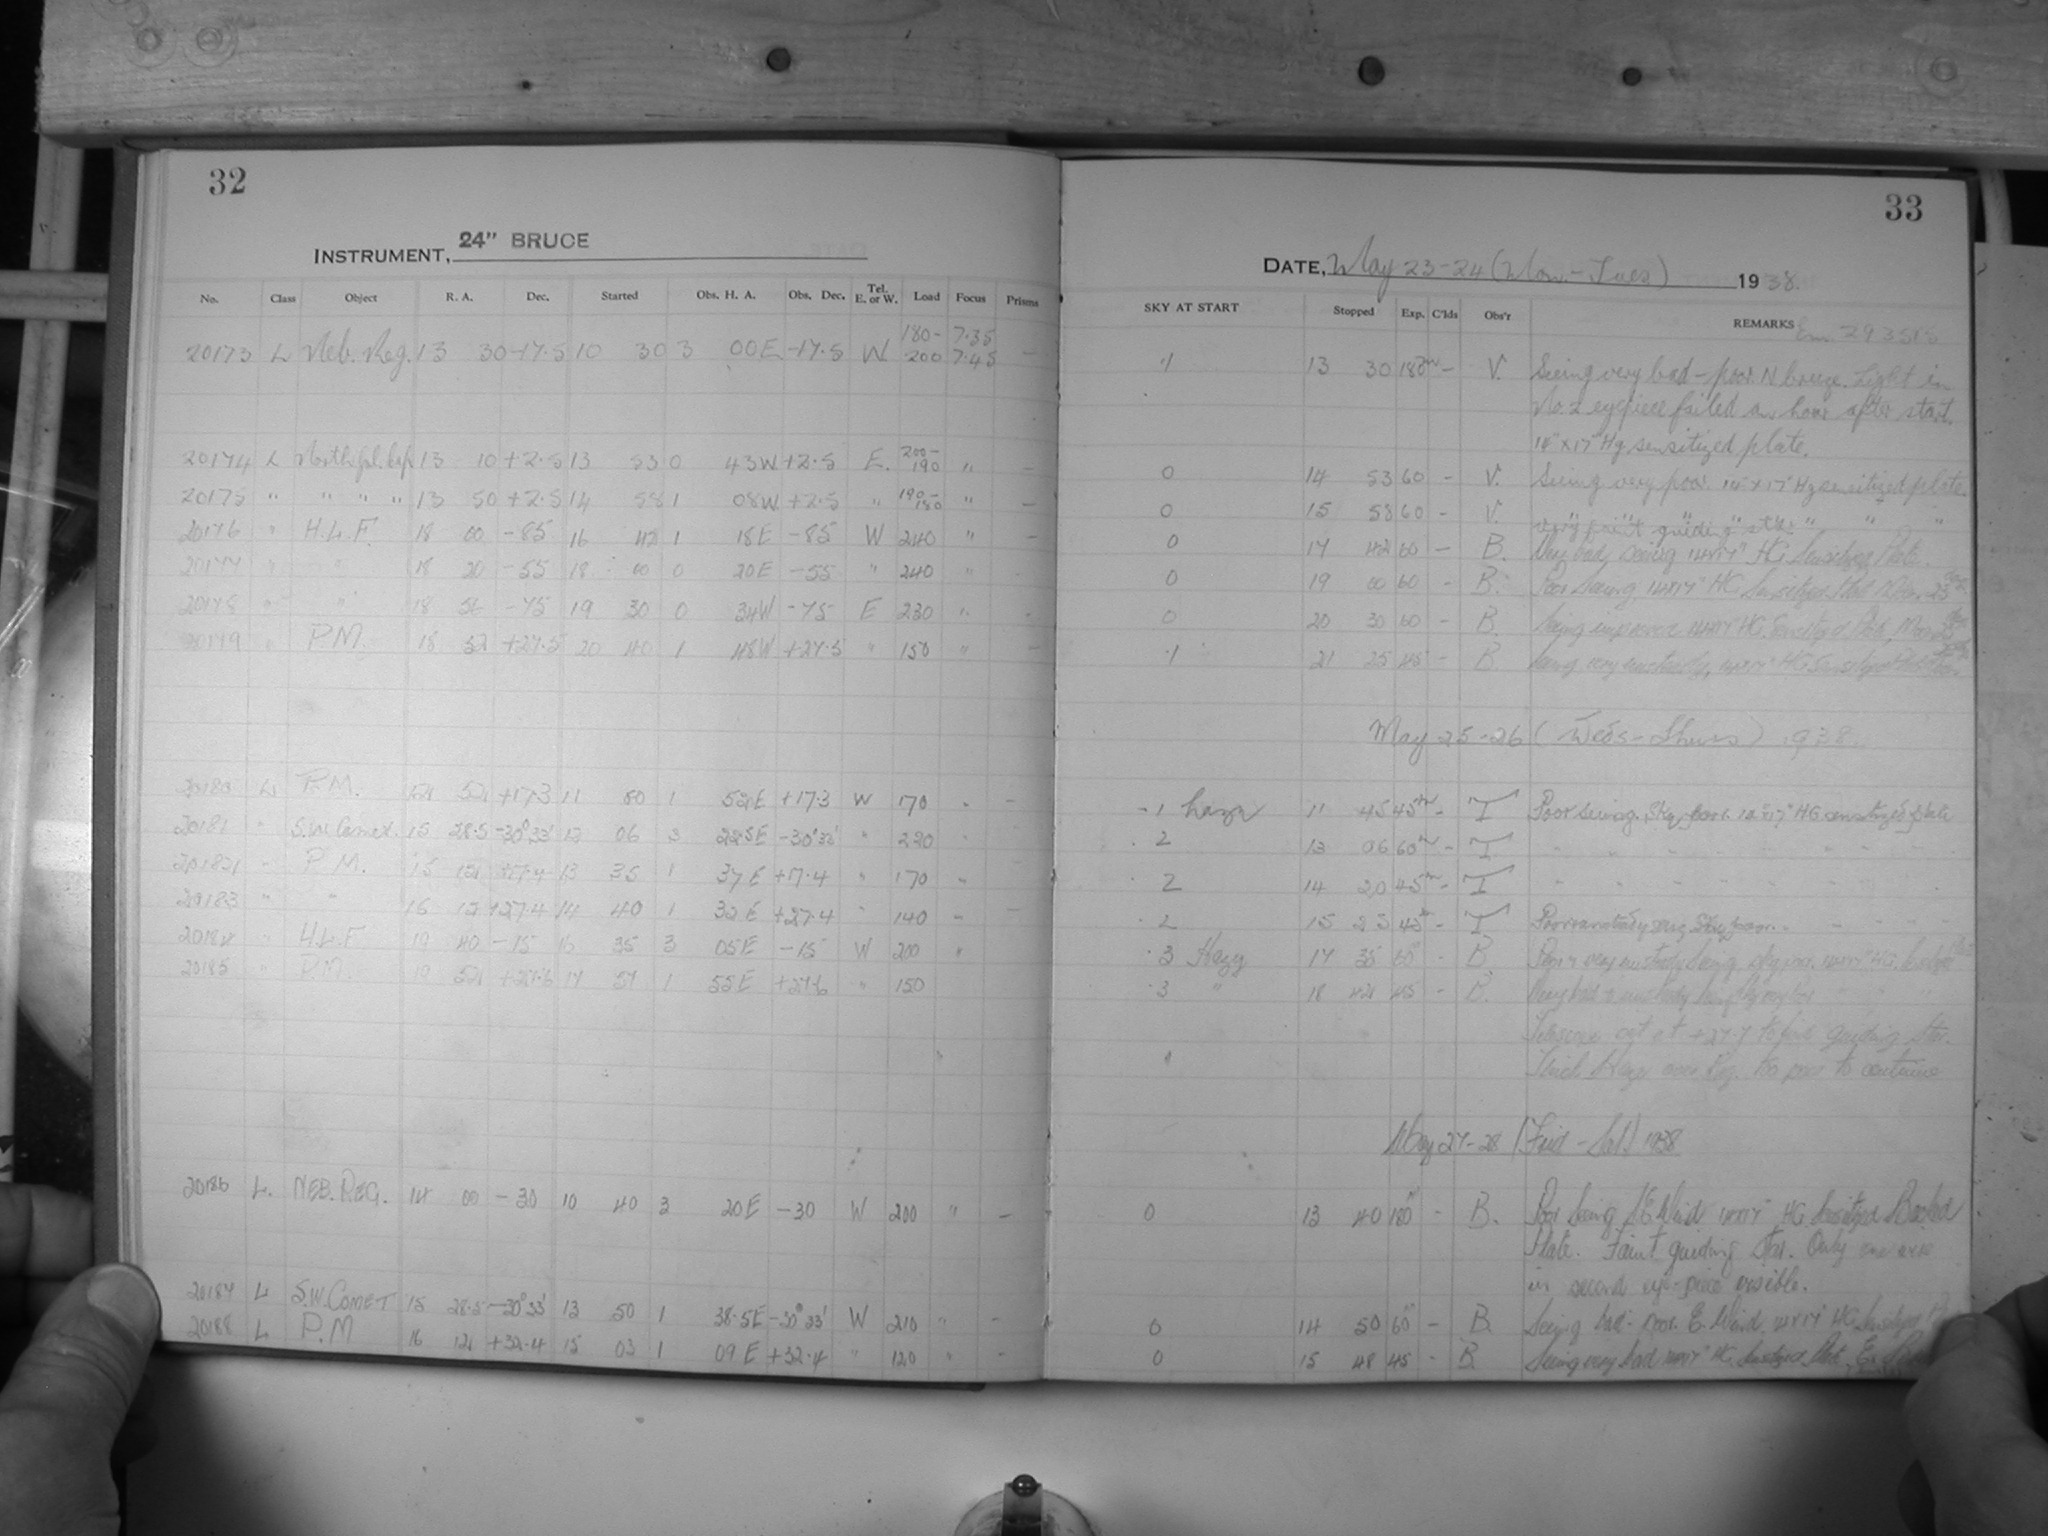 32
INSTRUMENT, 24" BRUCE
No. Class Object R. A. Dec. Started Obs. H. A. Obs. Dec. Tel. E. or W. Load Focus Prisms
20173 L Neb. Reg. 13 30 -17.5 10 30 3 00E -17.5 W 180-200 7.35 7.45 -
20174 L North gal. cap 13 10 +2.5 13 53 0 43W +2.5 E. 200-190 " -
20175 " " " " 13 50 +2.5 14 58 1 08W +2.5 " 190- " -
20176 " H.L.F. 18 00 -85 16 42 1 18E -85 W 240 " -
20177 " " 18 20 -55 18 00 0 20E -55 " 240
20178 " " 18 56 -75 19 30 0 34W -75 E 230 " -
20179 " P.M. 18 32 +27.5 20 40 1 48W +27.5 " 150 " -
20180 L P.M. +17.3 11 1 52E +17.3 W 170 -
20181 " S.W. Comet. 15 28.5 -30°33' 12 06 3 22.5E -30°33' " 220
20182 " P.M. 15 +17.4 13 35 1 37E +17.4 " 170
20183 " " 16 12 +27.4 14 40 1 32E +27.4 " 140 -
20184 " H.L.F 19 40 -15 16 35 3 05E -15 W 200 "
20185 " P.M. 19 52 +27.6 17 57 1 55E +27.6 " 150
20186 L. NEB. REG. 14 00 -30 10 40 3 20E -30 W 200 " -
20187 L S.W. COMET 15 28.5 -30°33' 13 50 1 38.5E -30°33' W 210 " -
20188 L P.M 16 12 +32.4 15 03 1 09E +32.4 " 120 " -
33
DATE, May 23-24 (Mon.-Tues) 1938.
SKY AT START Stopped Exp. C'lds Obs'r REMARKS
.1 13 30 180m - V. Seeing very bad - poor. N breeze. Light in
No. 2 eyepiece failed an hour after start.
14" x 17" Hg sensitized plate.
0 14 53 60 - V. Seeing very poor. 14" x 17" Hg sensitized plate.
0 15 58 60 - V. " " " " " "
very faint guiding star
0 17 42 60 - B. Very bad seeing 14x17" HG Sensitized Plate.
0 19 00 60 - B. Poor Seeing 14x17" HG Sensitized Plate
0 20 30 60 - B. Seeing improved 14x17" HG Sensitized Plate,
.1 21 25 45 - B. Seeing very unsteady, 14x17" HG Sensitized Plate
May 25-26 (Weds-Thurs) 1938.
.1 hazy 11 45 45m - T Poor seeing. Sky poor. 14"x17" HG sensitized plate
.2 13 06 60m - T " " " "
.2 14 20 45m - T " " " "
.2 15 25 45m - T Poor unsteady seeing Sky poor.
.3 Hazy 17 35 60 - B. Poor & very unsteady Seeing sky poor. 14x17" HG. Sensitized
.3 " 18 42 45 - B. Very bad & unsteady
Telescope set at +27.7 to find guiding Star.
Thick Haze over sky. too poor to continue
May 27-28 (Frid - Sat) 1938
0 13 40 180 - B. Poor Seeing S.E Wind 14x17" HG Sensitized Backed
Plate. Faint guiding Star. Only one wire
in second eye-piece visible.
0 14 50 60 - B. Seeing bad - poor. E. Wind. 14x17" HG Sensitized
0 15 48 45 - B. Seeing very bad 14x17" HG. Sensitized Plate.